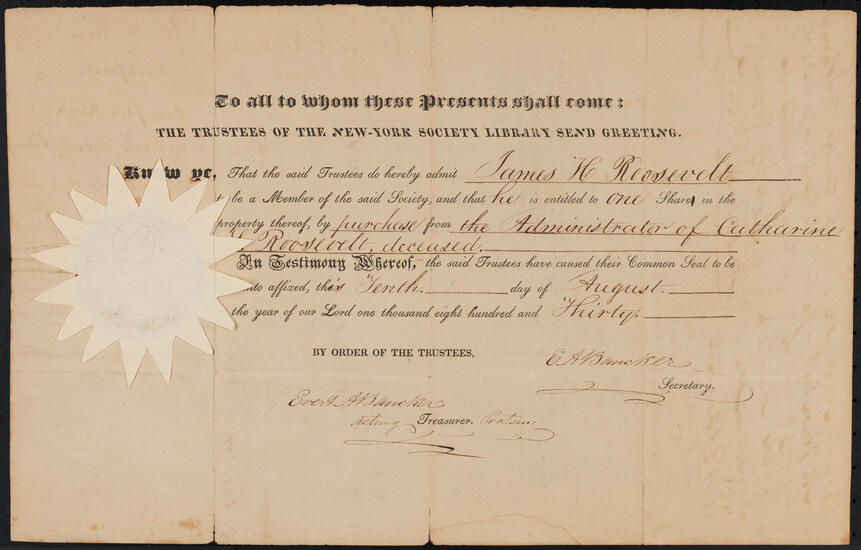 To all to whom these Presents shall come:
THE TRUSTEES OF THE NEW-YORK SOCIETY LIBRARY SEND GREETING.
Know ye, That the said Trustees do hereby admit James H Roosevelt
be a Member of the said Society, and that he is entitled to one Share in the
property thereof, by purchase from the Administrator of Catharine
Roosevelt, deceased.
In Testimony Whereof, the said Trustees have caused their Common Seal to be
affixed, this Tenth day of August
the year of our Lord one thousand eight hundred and Thirty.
BY ORDER OF THE TRUSTEES,
E A Bancker
Secretary.
Evert A Bancker
acting Treasurer. Protem: